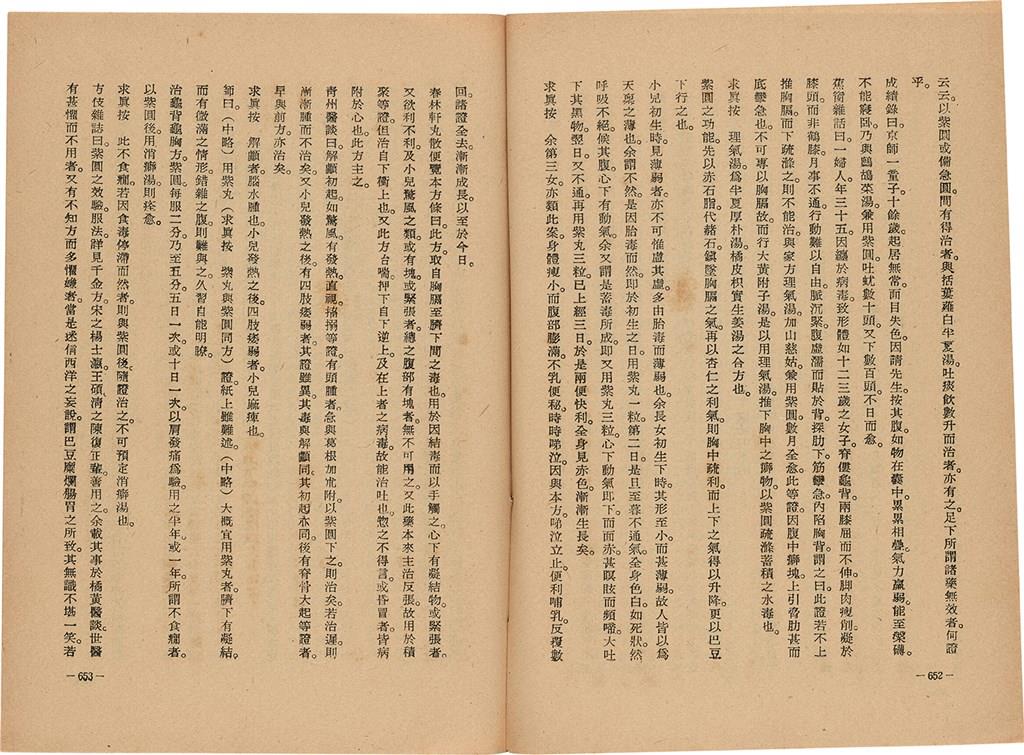 云云以紫圓或備急圓間有得治者與括蔞薤白半夏湯吐痰飲數升而治者亦有之足下所謂諸藥無效者何證
乎。
成績錄曰京師一童子十餘歲起居無常而目失色因請先生按其腹如物在囊中累累相疊氣力羸弱能至礫磚
不能寢臥乃與鷓鴣菜湯兼用紫圓吐蚘數十頭又下數百頭不日而愈。
蕉窗雜話曰一婦人年三十五因纏於病毒致形體如十二三歲之女子脊僂龜背兩膝屈而不伸脚肉瘦削凝於
膝頭而非鶴膝月事不通行動難以自由脈沉緊腹虛濡而貼於背探肋下筋攣急內陷胸背謂之曰此證若不上
推胸膈而下疏滌之則不能治與家方理氣湯加山慈姑兼用紫圓數月全愈此等證因腹中癖塊上引脅肋甚而
底攣急也不可專以胸膈故而行大黃附子湯是以用理氣湯推下胸中之癖物以紫圓疏滌蓄積之水毒也。
求眞按　理氣湯爲半夏厚朴湯橘皮枳實生姜湯之合方也。
紫圓之功能先以赤石脂代赭石鎭墜胸膈之氣再以杏仁之利氣則胸中疏利而上下之氣得以升降更以巴豆
下行之也。
小兒初生時見薄弱者亦不可惟慮其虛多由胎毒而薄弱也余長女初生下時其形至小而甚薄弱故人皆以爲
天稟之薄也余謂不然是因胎毒而然即於初生之日用紫丸一粒第二日是旦至暮不通氣全身色白如死狀然
呼吸不絕候其腹心下有動氣余又謂是蓄毒所成即又用紫丸三粒心下動氣即下而赤甚瞑眩而頻嚏大吐
下其黑物翌日又不通再用紫丸三粒已上經三日於是兩便快利全身見赤色漸漸生長矣。
求眞按　余第三女亦類此案身體瘦小而腹部膨滿不乳便秘時時啼泣因與本方啼泣立止便利哺乳反覆數
－652－
回諸證全去漸漸成長以至於今日。
春林軒丸散便覽本方條曰此方取自胸膈至臍下間之毒也用於因結毒而以手觸之心下有凝結物或緊張者
又欲利不利及小兒驚風之類或有塊或緊張者總之腹部有塊者無不可用之又此藥本來主治反張故用於積
聚等證但治自下衝上也又此方台喘押下自下逆上及在上者之病毒故能治吐也惣之不得言或昏冒者皆病
附於心也此方主之。
靑州醫談曰解顱初起如驚風有發熱直視搐搦等證有頭腫者急與葛根加朮附以紫圓下之則治矣若治遲則
漸漸腫而不治矣又小兒發熱之後有四肢痿弱者其證雖異其毒與解顱同其初起亦同後有脊骨大起等證者
早與前方亦治矣。
求眞按　解顱者腦水腫也小兒發熱之後四肢痿弱者小兒麻痺也。
師曰（中略）用紫丸（求眞按　紫丸與紫圓同方）證紙上雖難述。（中略）大概宜用紫丸者臍下有凝結。
而有微滿之情形錯雜之腹則難與之久習自能明瞭。
治龜背龜胸方。紫圓每服二分乃至五分五日一次或十日一次以肩發痛爲驗用之半年或一年所謂不食癇者。
以紫圓後用消癖湯則痊愈。
求眞按　此不食癇若因食毒停滯而然者則與紫圓後隨證治之不可預定消癖湯也。
方伎雜誌曰紫圓之效驗服法詳見千金方宋之楊士瀛王碩淸之陳復正輩善用之余載其事於橘黃醫談世醫
有甚懼而不用者又有不知方而多懼嫌者當是迷信西洋之妄說謂巴豆糜爛腸胃之所致其無識不堪一笑若
－653－